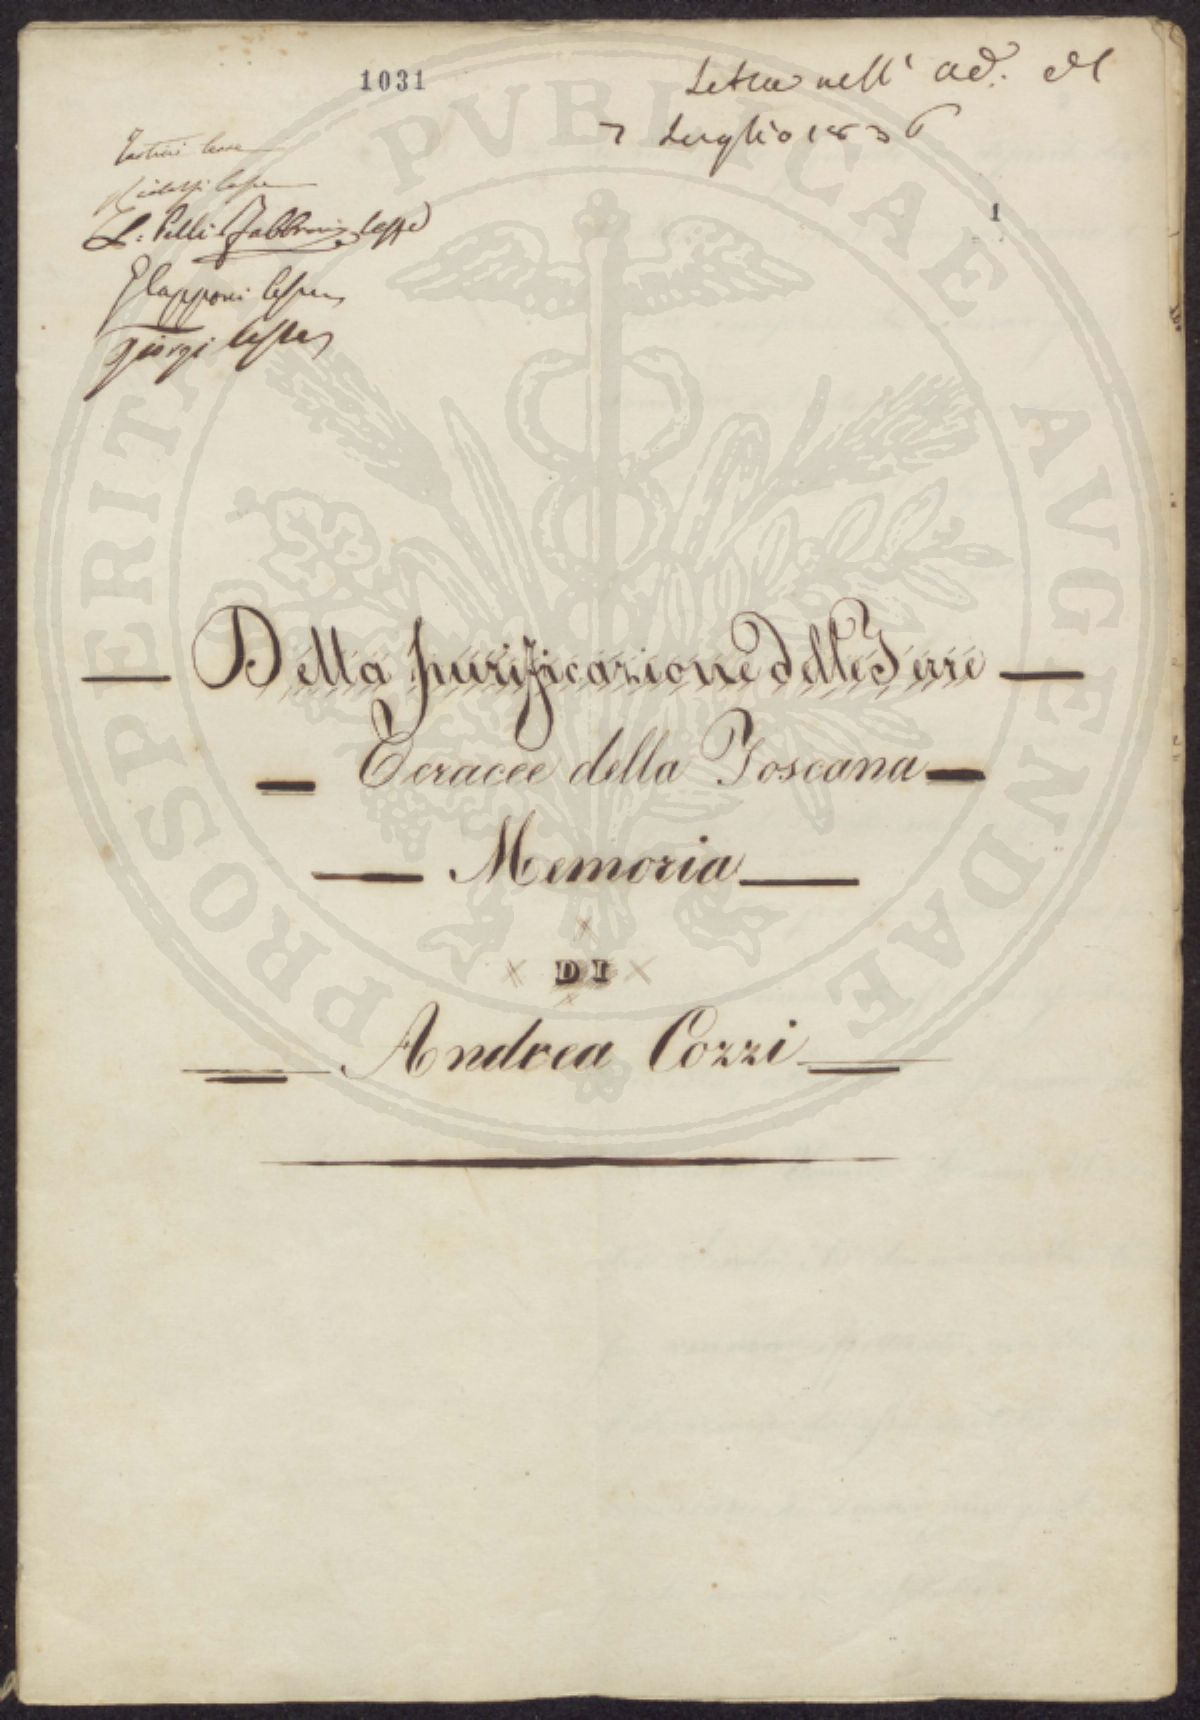 1031
Letta nell' ad. del
7 Luglio 1836
1
Tartini lesse
Ridolfi lesse
L. Pelli Fabbroni lesse
Capponi lesse
Giorgi lesse
Della Purificazione delle Terre
Ocracee della Toscana
Memoria
DI
Andrea Cozzi
PROSPERITATI PVBLICAE AVGENDAE